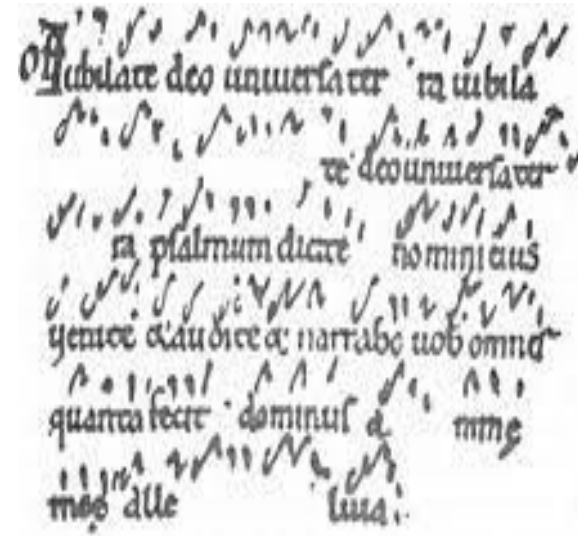 Of Iubilate deo uniuersa ter ra iubila
te deo uniuersa ter
ra psalmum dicite nomini eius
uenite & audite & narrabo uob omnes
quanta fecit dominus anime
meę alle luia.